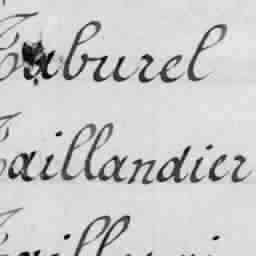 Taburel
Taillandier